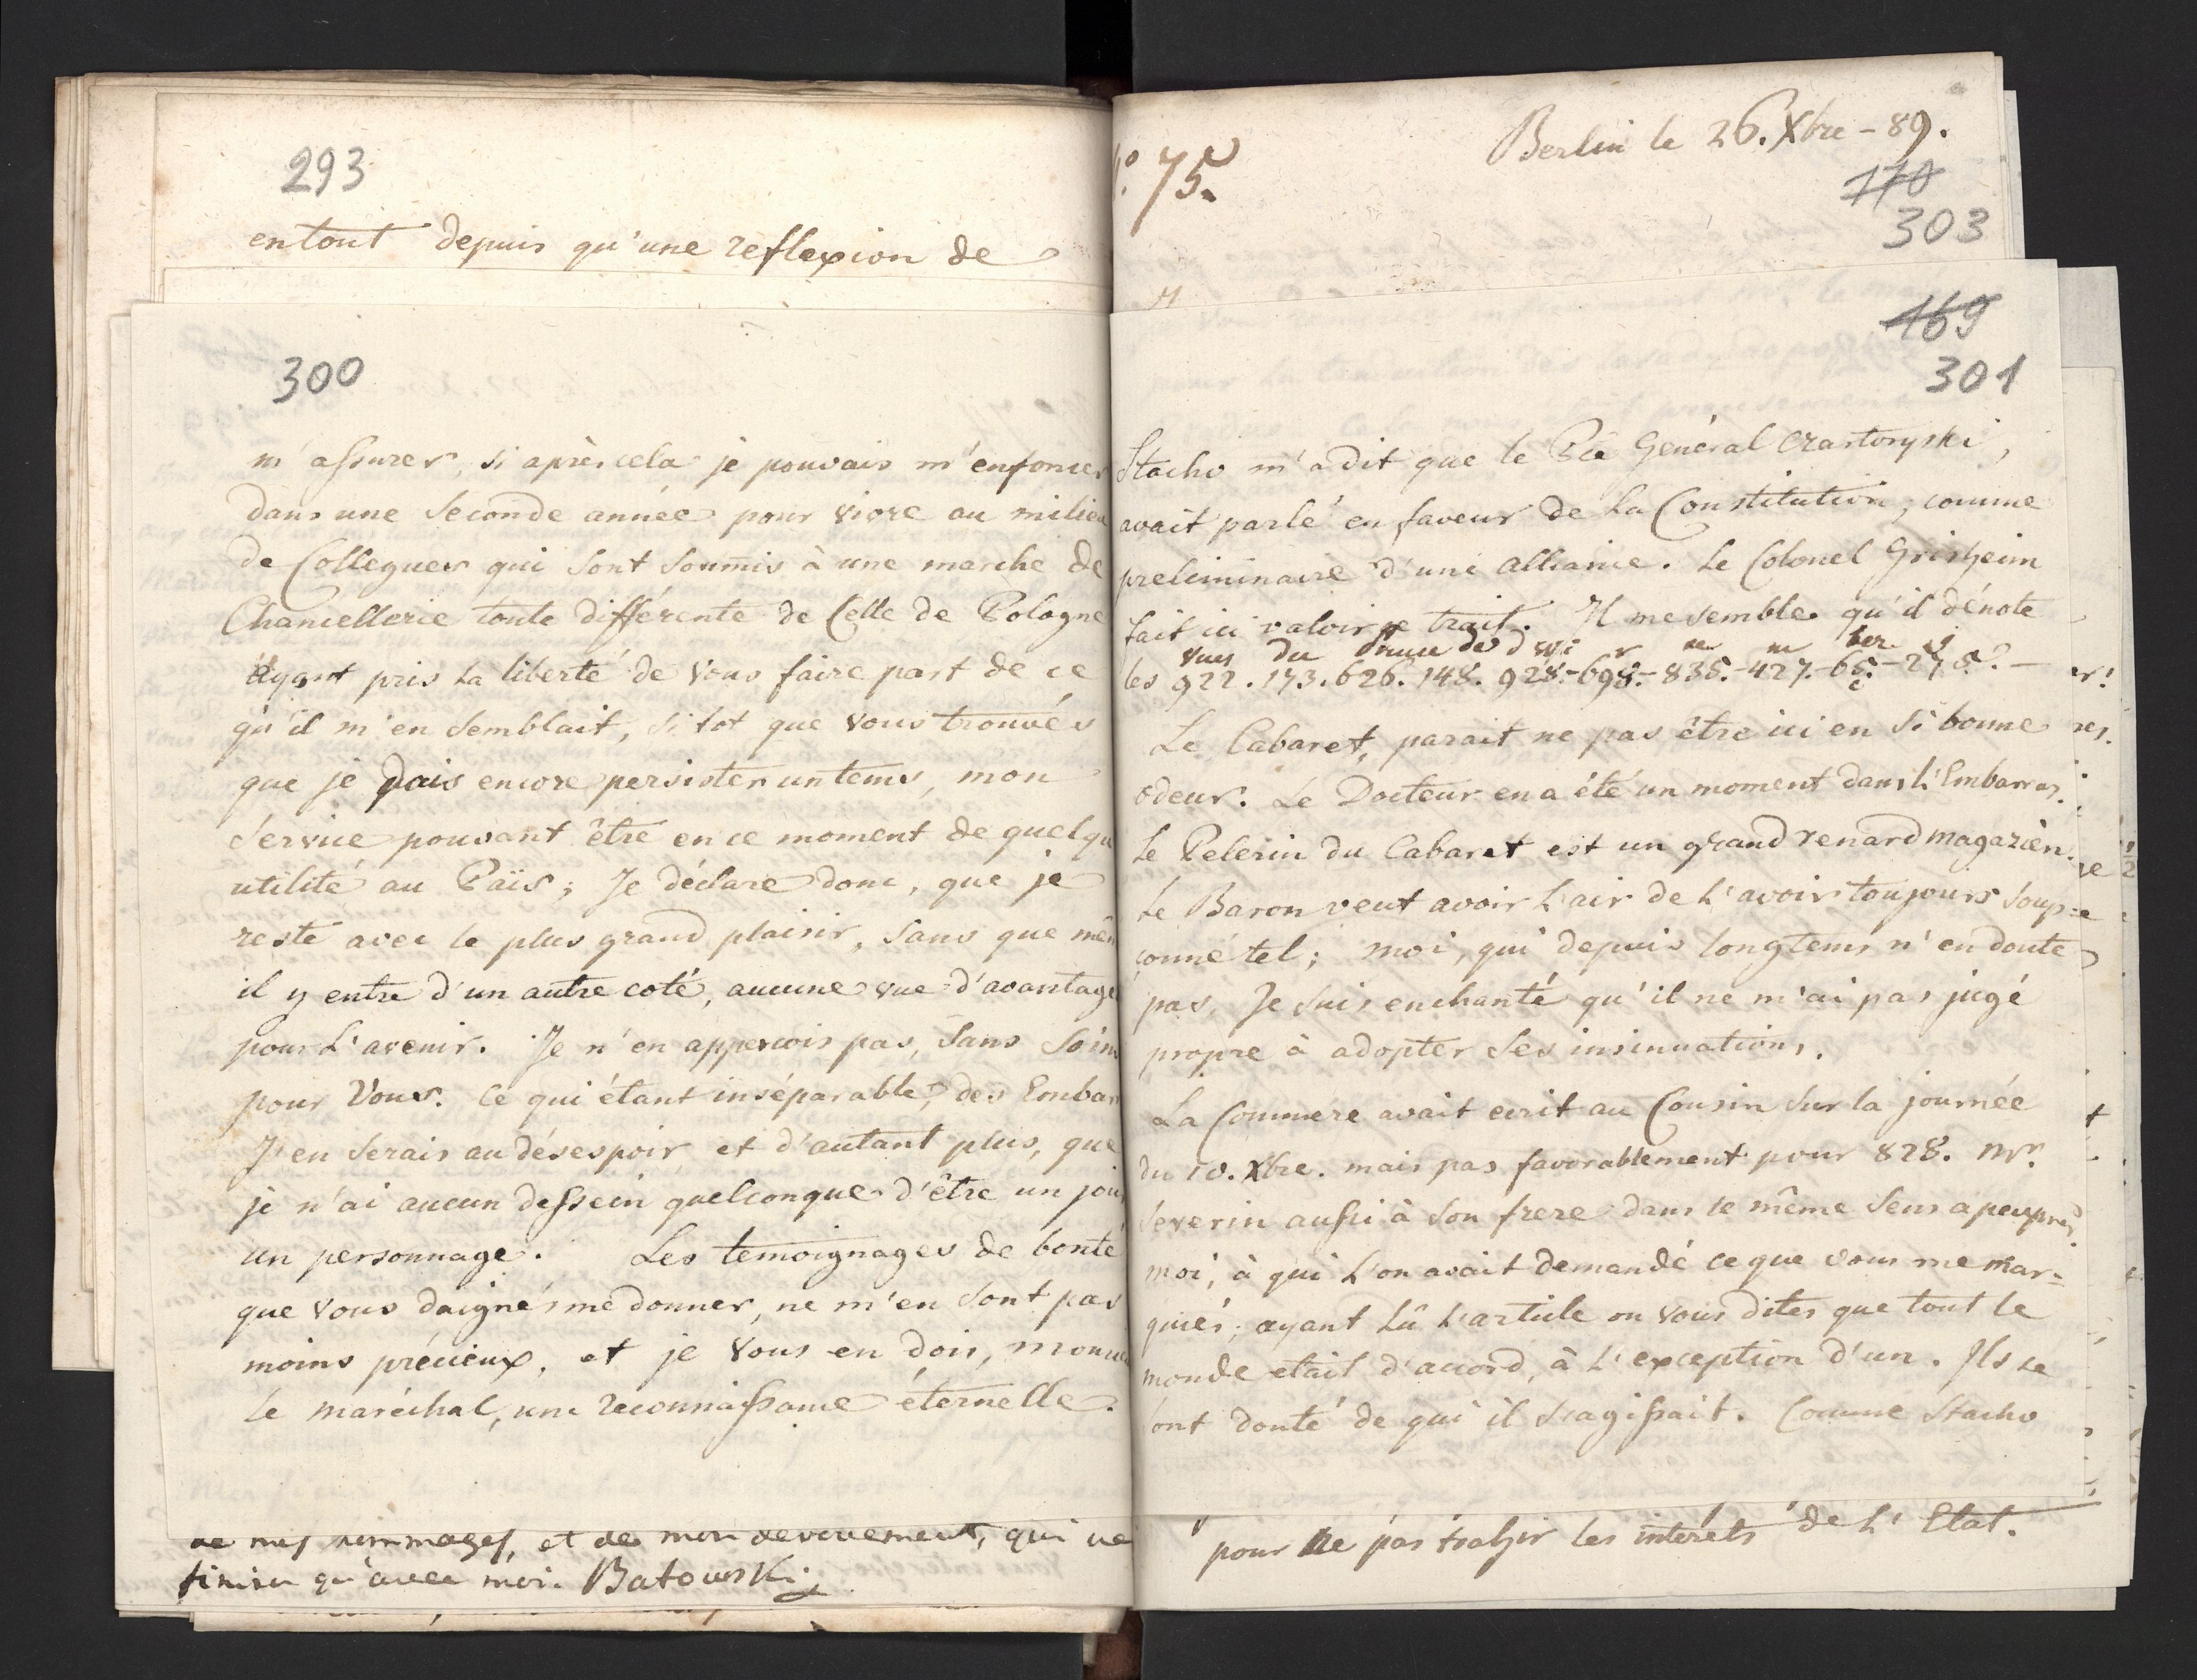 293
entout depuis qu'une reflexion de
300
m'assurer, si après cela je pouvais m'enfoncer
dans une seconde année pour vivre au milieu
de Collegues qui sont soumis à une marche de
Chancellerie toute différente de Celle de Pologne
Ayant pris la liberté de vous faire part de ce
qu'il m'en semblait, si tot que vous trouvés
que je dais encore persister un tems, mon
service pouvant être en ce moment de quelqu
utilité au Païs; Je déclare donc, que je
reste avec le plus grand plaisir, sans que mêm
il y entre d'un autre coté, aucune vue d'avantage
pour l'avenir. Je n'en appercois pas, sans soins
pour Vous. Ce qui étant inséparable, des Embar
J'en serais au désespoir et d'autant plus, que
je n'ai aucun dessein quelconque d'être un jour
un personnage. Les temoignages de bonté
que vous daignés me donner, ne m'en sont pas
moins précieux, et je vous en dois,
le maréchal, une reconnaissance éternelle.
de mes hommages, et de mon devouement, qui ne
finira qu'avec moi. Batowski
75.
Berlin le 26. Xbre - 89.
170
303
169
301
Stacho m'a dit que le Pce Général Czartoryski,
avait parlé en faveur de la Constitution, comme
preliminaire d'une alliance. Le Colonel Grisheim
fait ici valoir ce trait. Il me semble qu'il dénote
vues du de d
les 922. 173. 626. 148. 928.-698.-835.-427.-65.-275.? —
Le Cabaret, parait ne pas être ici en si bonne
odeur. Le Docteur en a été un moment dans l'Embarras.
Le Pelerin du Cabaret est un grand renard magazien.
Le Baron veut avoir l'air de l'avoir toujours soup=
çonné tel; moi, qui depuis longtems n'en doute
pas. Je suis enchanté qu'il ne m'ai pas jugé
propre à adopter ses insinuations.
La Commere avait ecrit au Cousin sur la journée
du 10. Xbre. mais pas favorablement pour 828. Mr.
Severin aussi à son frere dans le même sens apeuprès,
moi, à qui l'on avait demandé ce que vous me mar=
quiés; ayant lû l'article ou vous dites que tout le
monde etait d'accord, à l'exception d'un. Ils se
sont douté de qui il s'agissait. Comme Stacho
pour ne pas trahir les intérets de l'Etat.